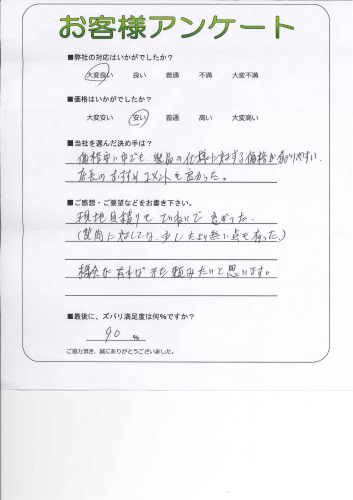 お客様アンケート
■弊社の対応はいかがでしたか?
大変良い 良い 普通 不満 大変不満
■価格はいかがでしたか?
大変安い 安い 普通 高い 大変高い
■当社を選んだ決め手は?
価格安い中でも、製品の仕様に対する価格が分りやすい、
店長のおすすめコメントも良かった。
■ご感想・ご要望などをお書き下さい。
現地見積りもていねいで良かった。
(質問に対しては、少したより無い点も有った。)
機会があればまた頼みたいと思います。
■最後に、ズバリ満足度は何%ですか?
90 %
ご協力頂き、誠にありがとうございました。